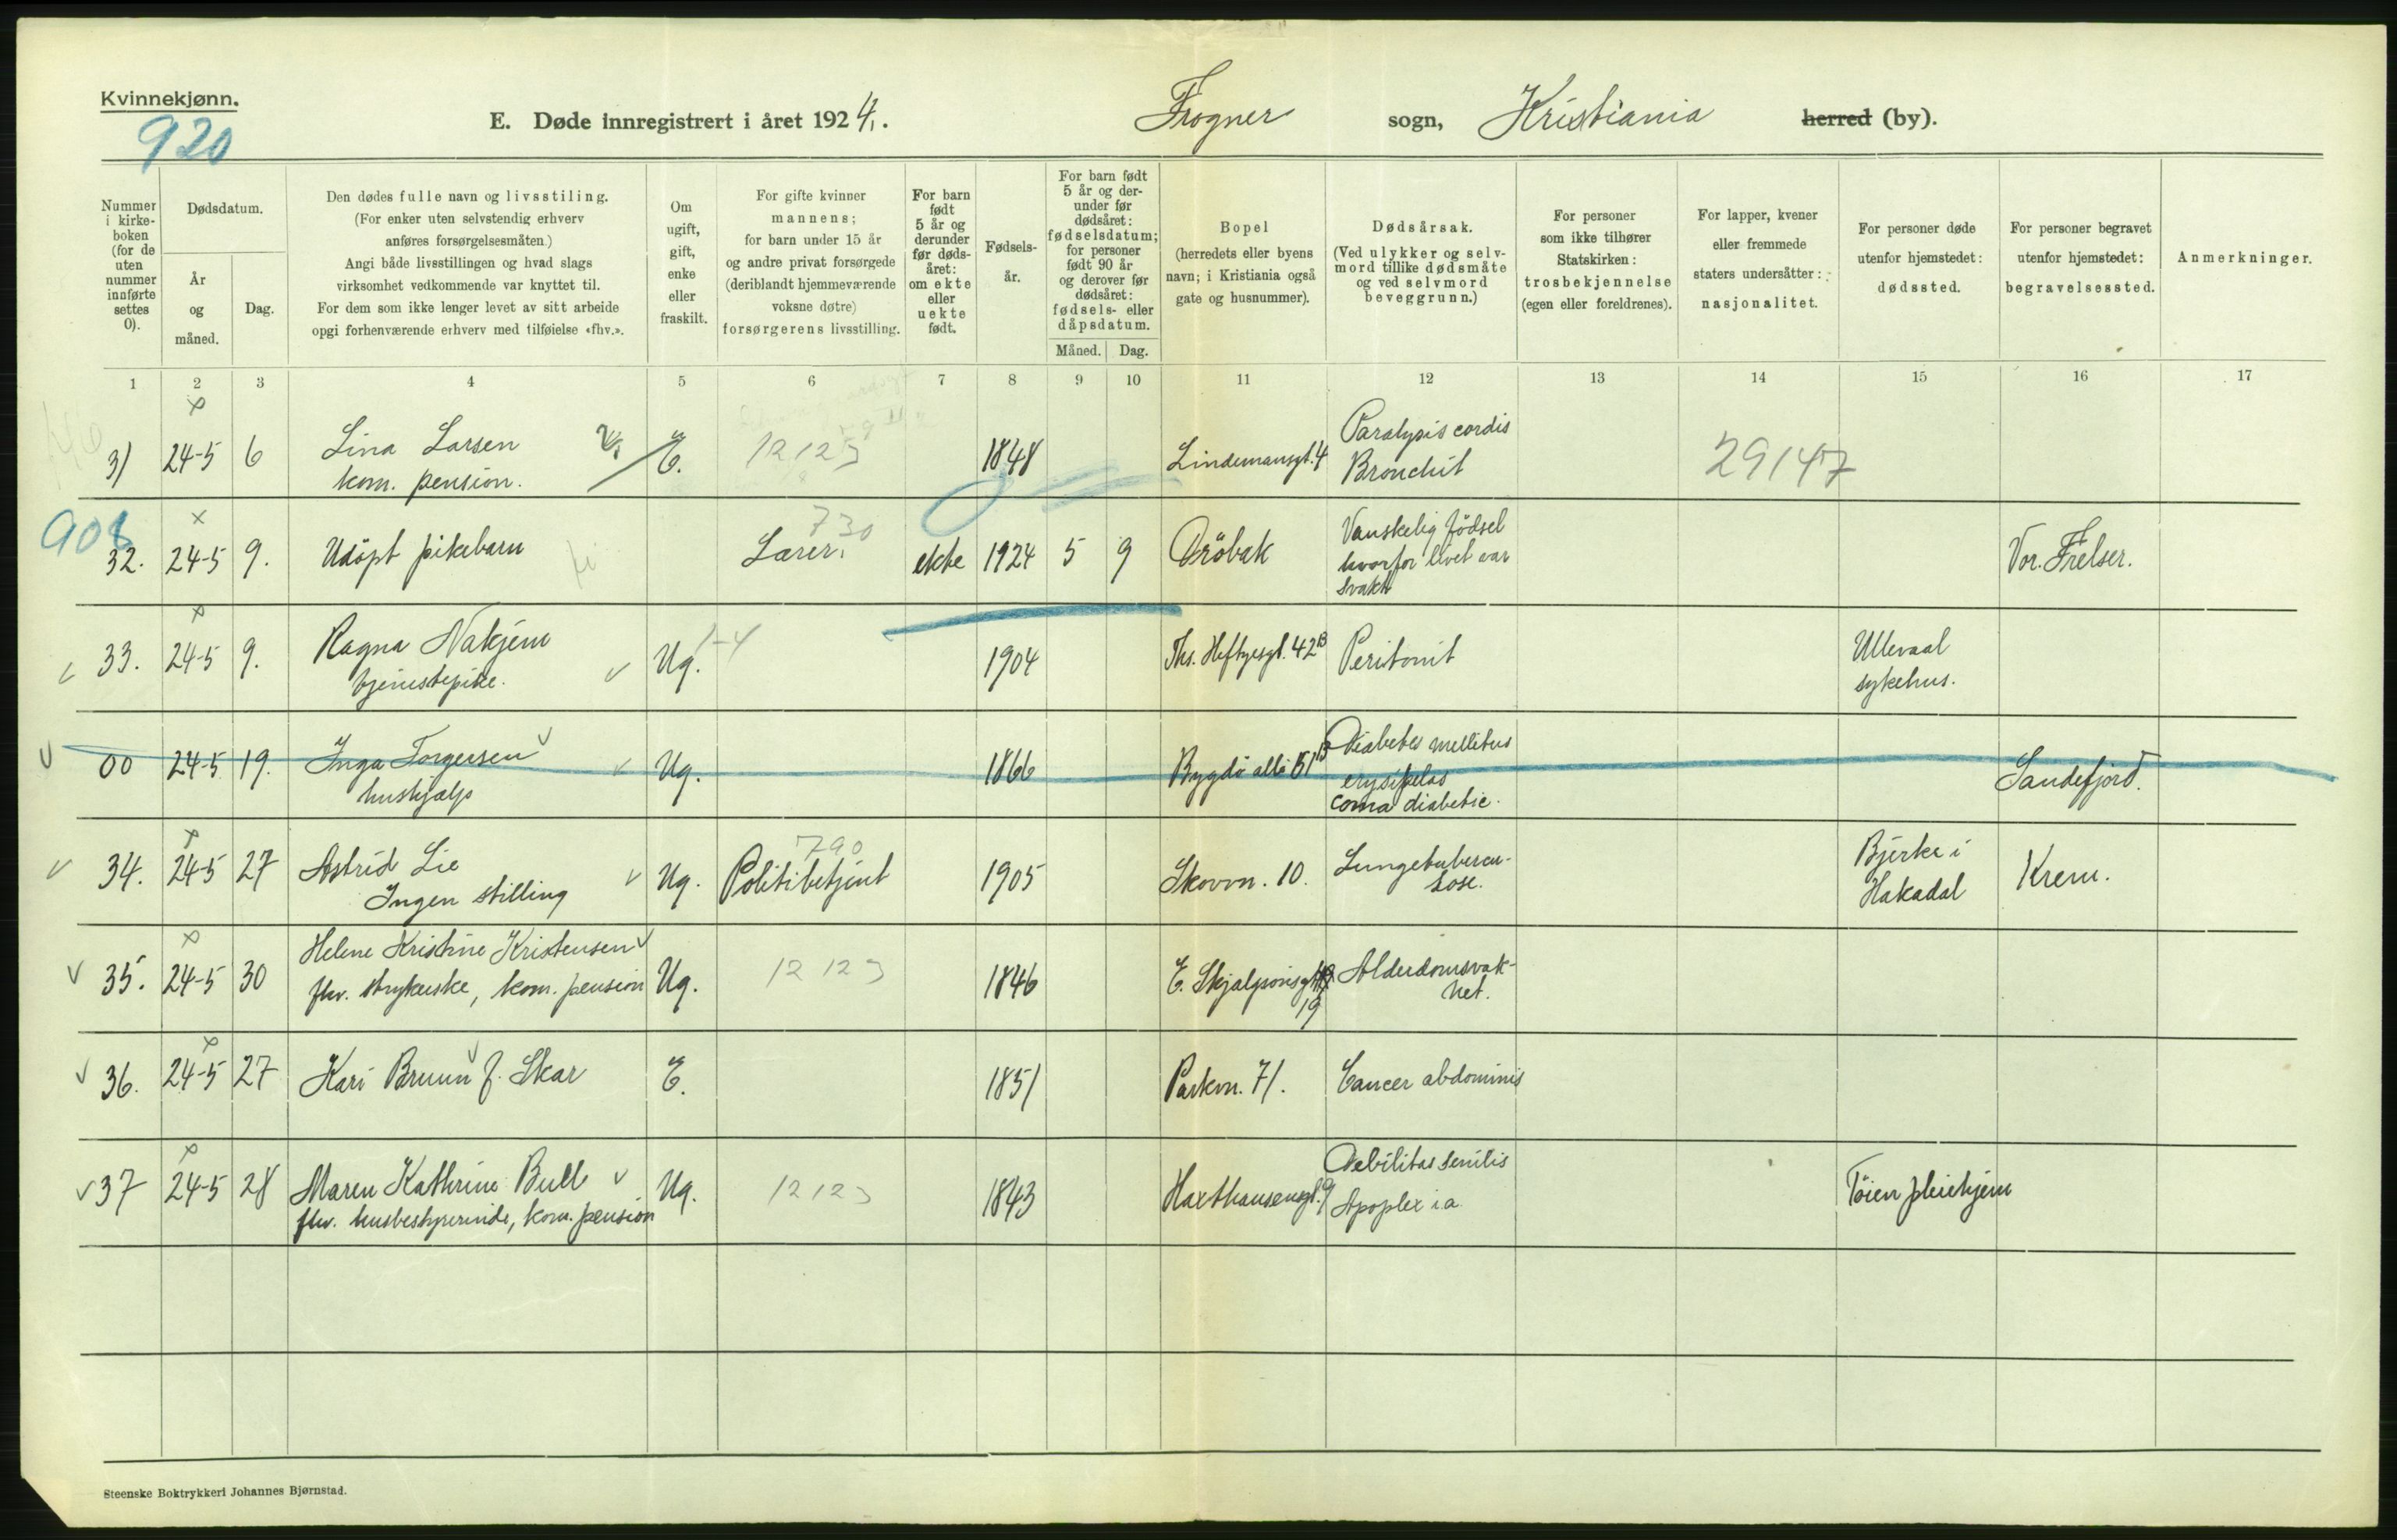 Kvinnekjønn.
920
E. Døde innregistrert i året 1924. Frogner sogn, Kristiania herred (by).
Nummer i kirke-boken (for de uten nummer innførte settes 0).
Dødsdatum.
År og måned.
Dag.
Den dødes fulle navn og livsstiling.
(For enker uten selvstendig erhverv
anføres forsørgelsesmåten.)
Angi både livsstillingen og hvad slags
virksomhet vedkommende var knyttet til.
For dem som ikke lenger levet av sitt arbeide
opgi forhenværende erhverv med tilføielse «fhv.».
Om
ugift,
gift,
enke
eller
fraskilt.
For gifte kvinner
mannens;
for barn under 15 år
og andre privat forsørgede
(deriblandt hjemmeværende
voksne døtre)
forsørgerens livsstilling.
For barn
født
5 år og
derunder
før døds-
året:
om ekte
eller
uekte
født.
Fødsels-
år.
For barn født
5 år og der-
under før
dødsåret:
fødselsdatum;
for personer
født 90 år
og derover før
dødsåret:
fødsels- eller
dåpsdatum.
Måned. Dag.
Bopel
(herredets eller byens
navn; i Kristiania også
gate og husnummer).
Dødsårsak.
(Ved ulykker og selv-
mord tillike dødsmåte
og ved selvmord
beveggrunn.)
For personer
som ikke tilhører
Statskirken:
trosbekjennelse
(egen eller foreldrenes).
For lapper, kvener
eller fremmede
staters undersåtter:
nasjonalitet.
For personer døde
utenfor hjemstedet:
dødssted.
For personer begravet
utenfor hjemstedet:
begravelsessted.
Anmerkninger.
1 2 3 4 5 6 7 8 9 10 11 12 13 14 15 16 17
31 24-5 6 Lina Larsen E. 12123 1848 Lindemansgt. 4 Paralysis cordis 29147
kom. pension. Bronchit
908
32. 24-5 9. Udöpt pikebarn 730 Lærer. ekte 1924 5 9 Dröbak Vanskelig födsel Vor. Frelser.
hvorfor livet var
svakt
33. 24-5 9. Ragna Nakjem Ug. 1-4 1904 Ths. Heftyesgt. 42B Peritonit Ullevaal
tjenestepike. sykehus.
00 24-5 19. Inga Torgersen Ug. 1866 Bygdö allé 51B Diabetes mellitus Sandefjord.
hushjælp erysipelas
coma diabetic.
34. 24-5 27 Astrid Lie Ug. 790 Politibetjent 1905 Skovvn. 10. Lungetubercu- Bjerke i Krem.
Ingen stilling lose. Hakadal
35. 24-5 30 Helene Kristine Kristensen Ug. 12123 1846 E. Skjalgsönsgt. Alderdomsvak-
fhv. strykerske, kom. pension 19 het.
36. 24-5 27 Kari Bruun f. Skar E. 1851 Parkvn. 71. Cancer abdominis
37 24-5 28 Maren Kathrine Bull Ug. 12123 1843 Haxthausensgt. 9 Debilitas senilis Töien pleiehjem
fhv. husbestyrerinde, kom. pension Apoplexia
Steenske Boktrykkeri Johannes Bjørnstad.